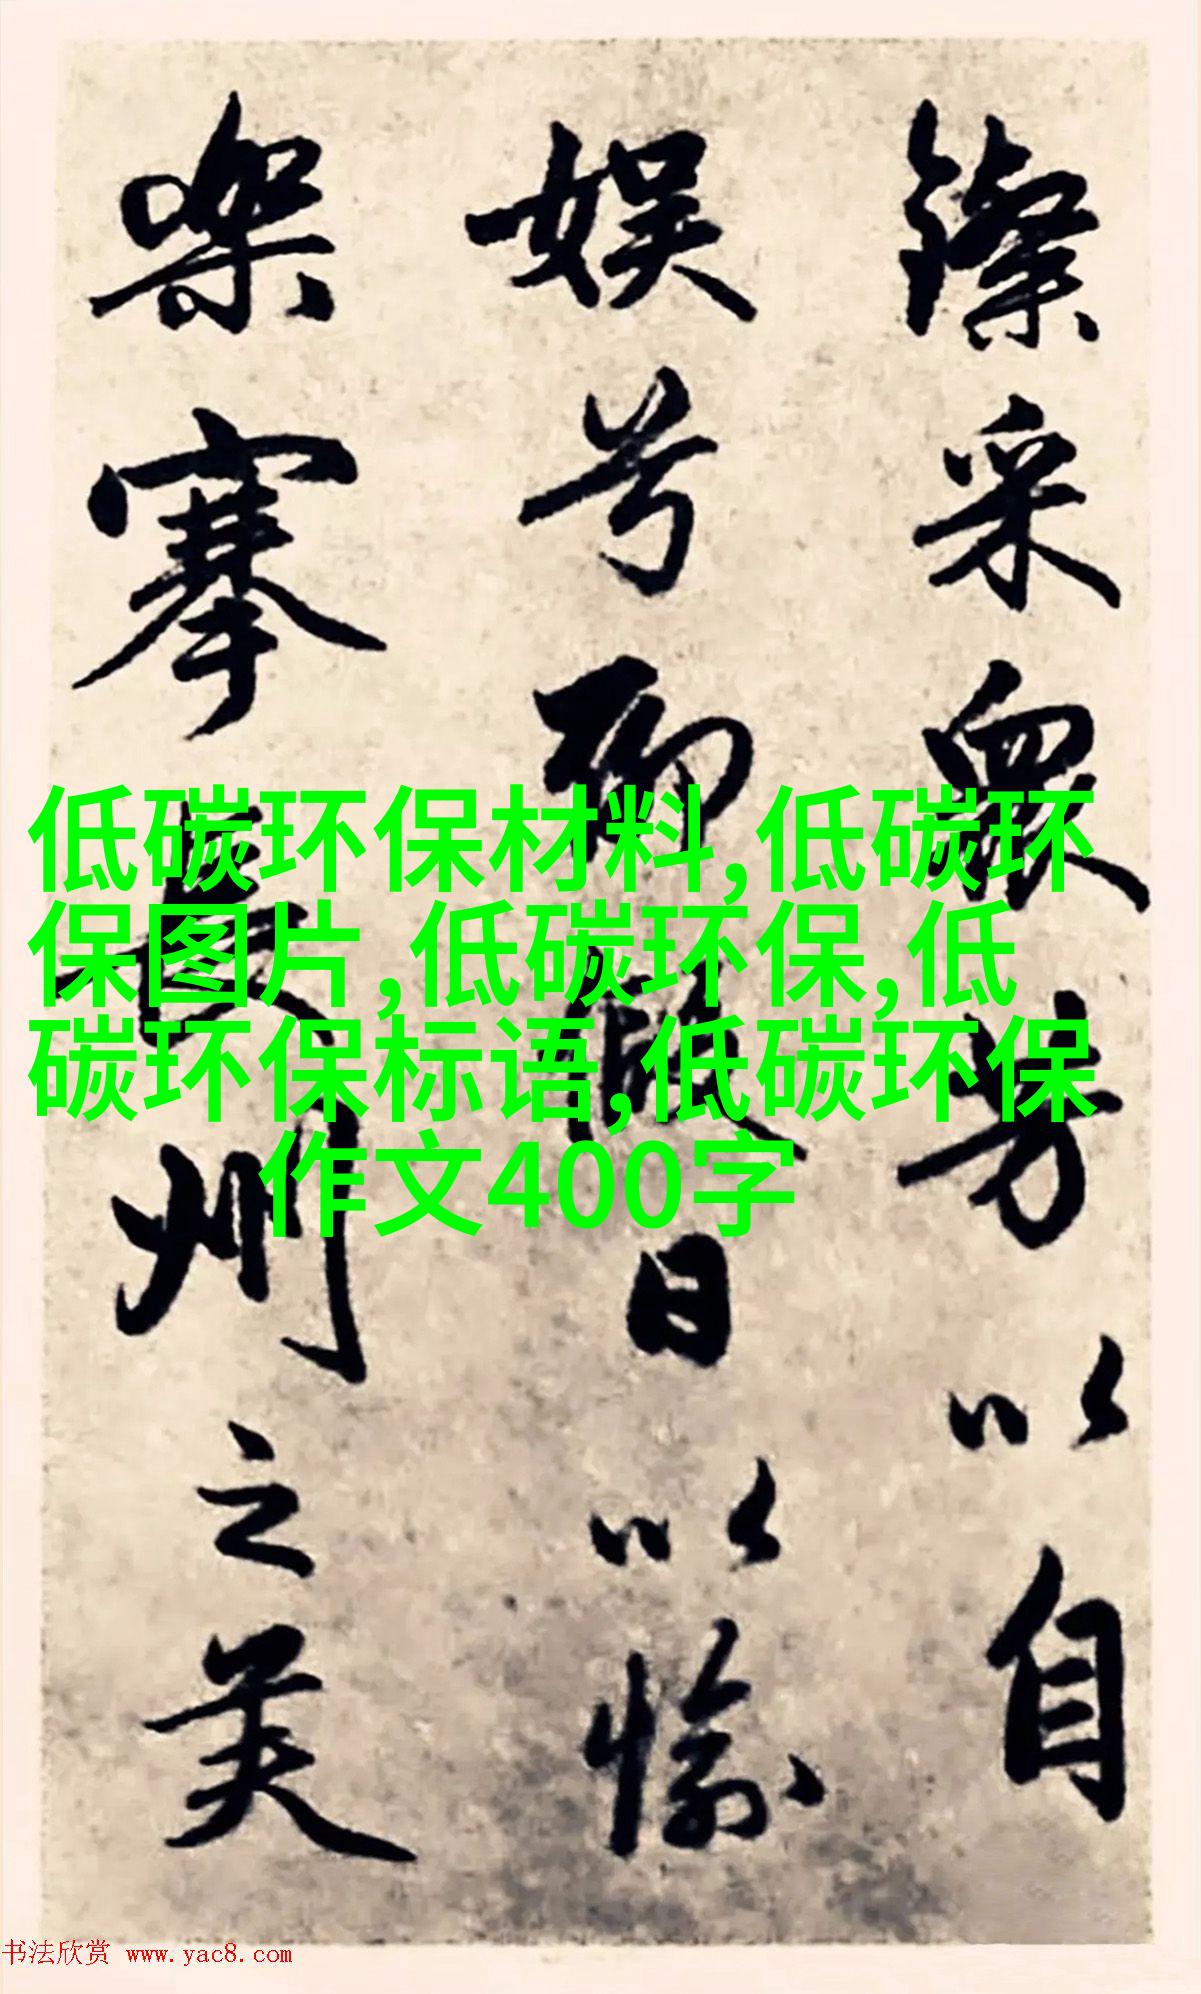 采眾芳以自
娱兮聊暇日以愉
樂搴長洲之芙
低碳环保材料,低碳环
保图片,低碳环保,低
碳环保标语,低碳环保
作文400字
书法欣赏 www.yac8.com